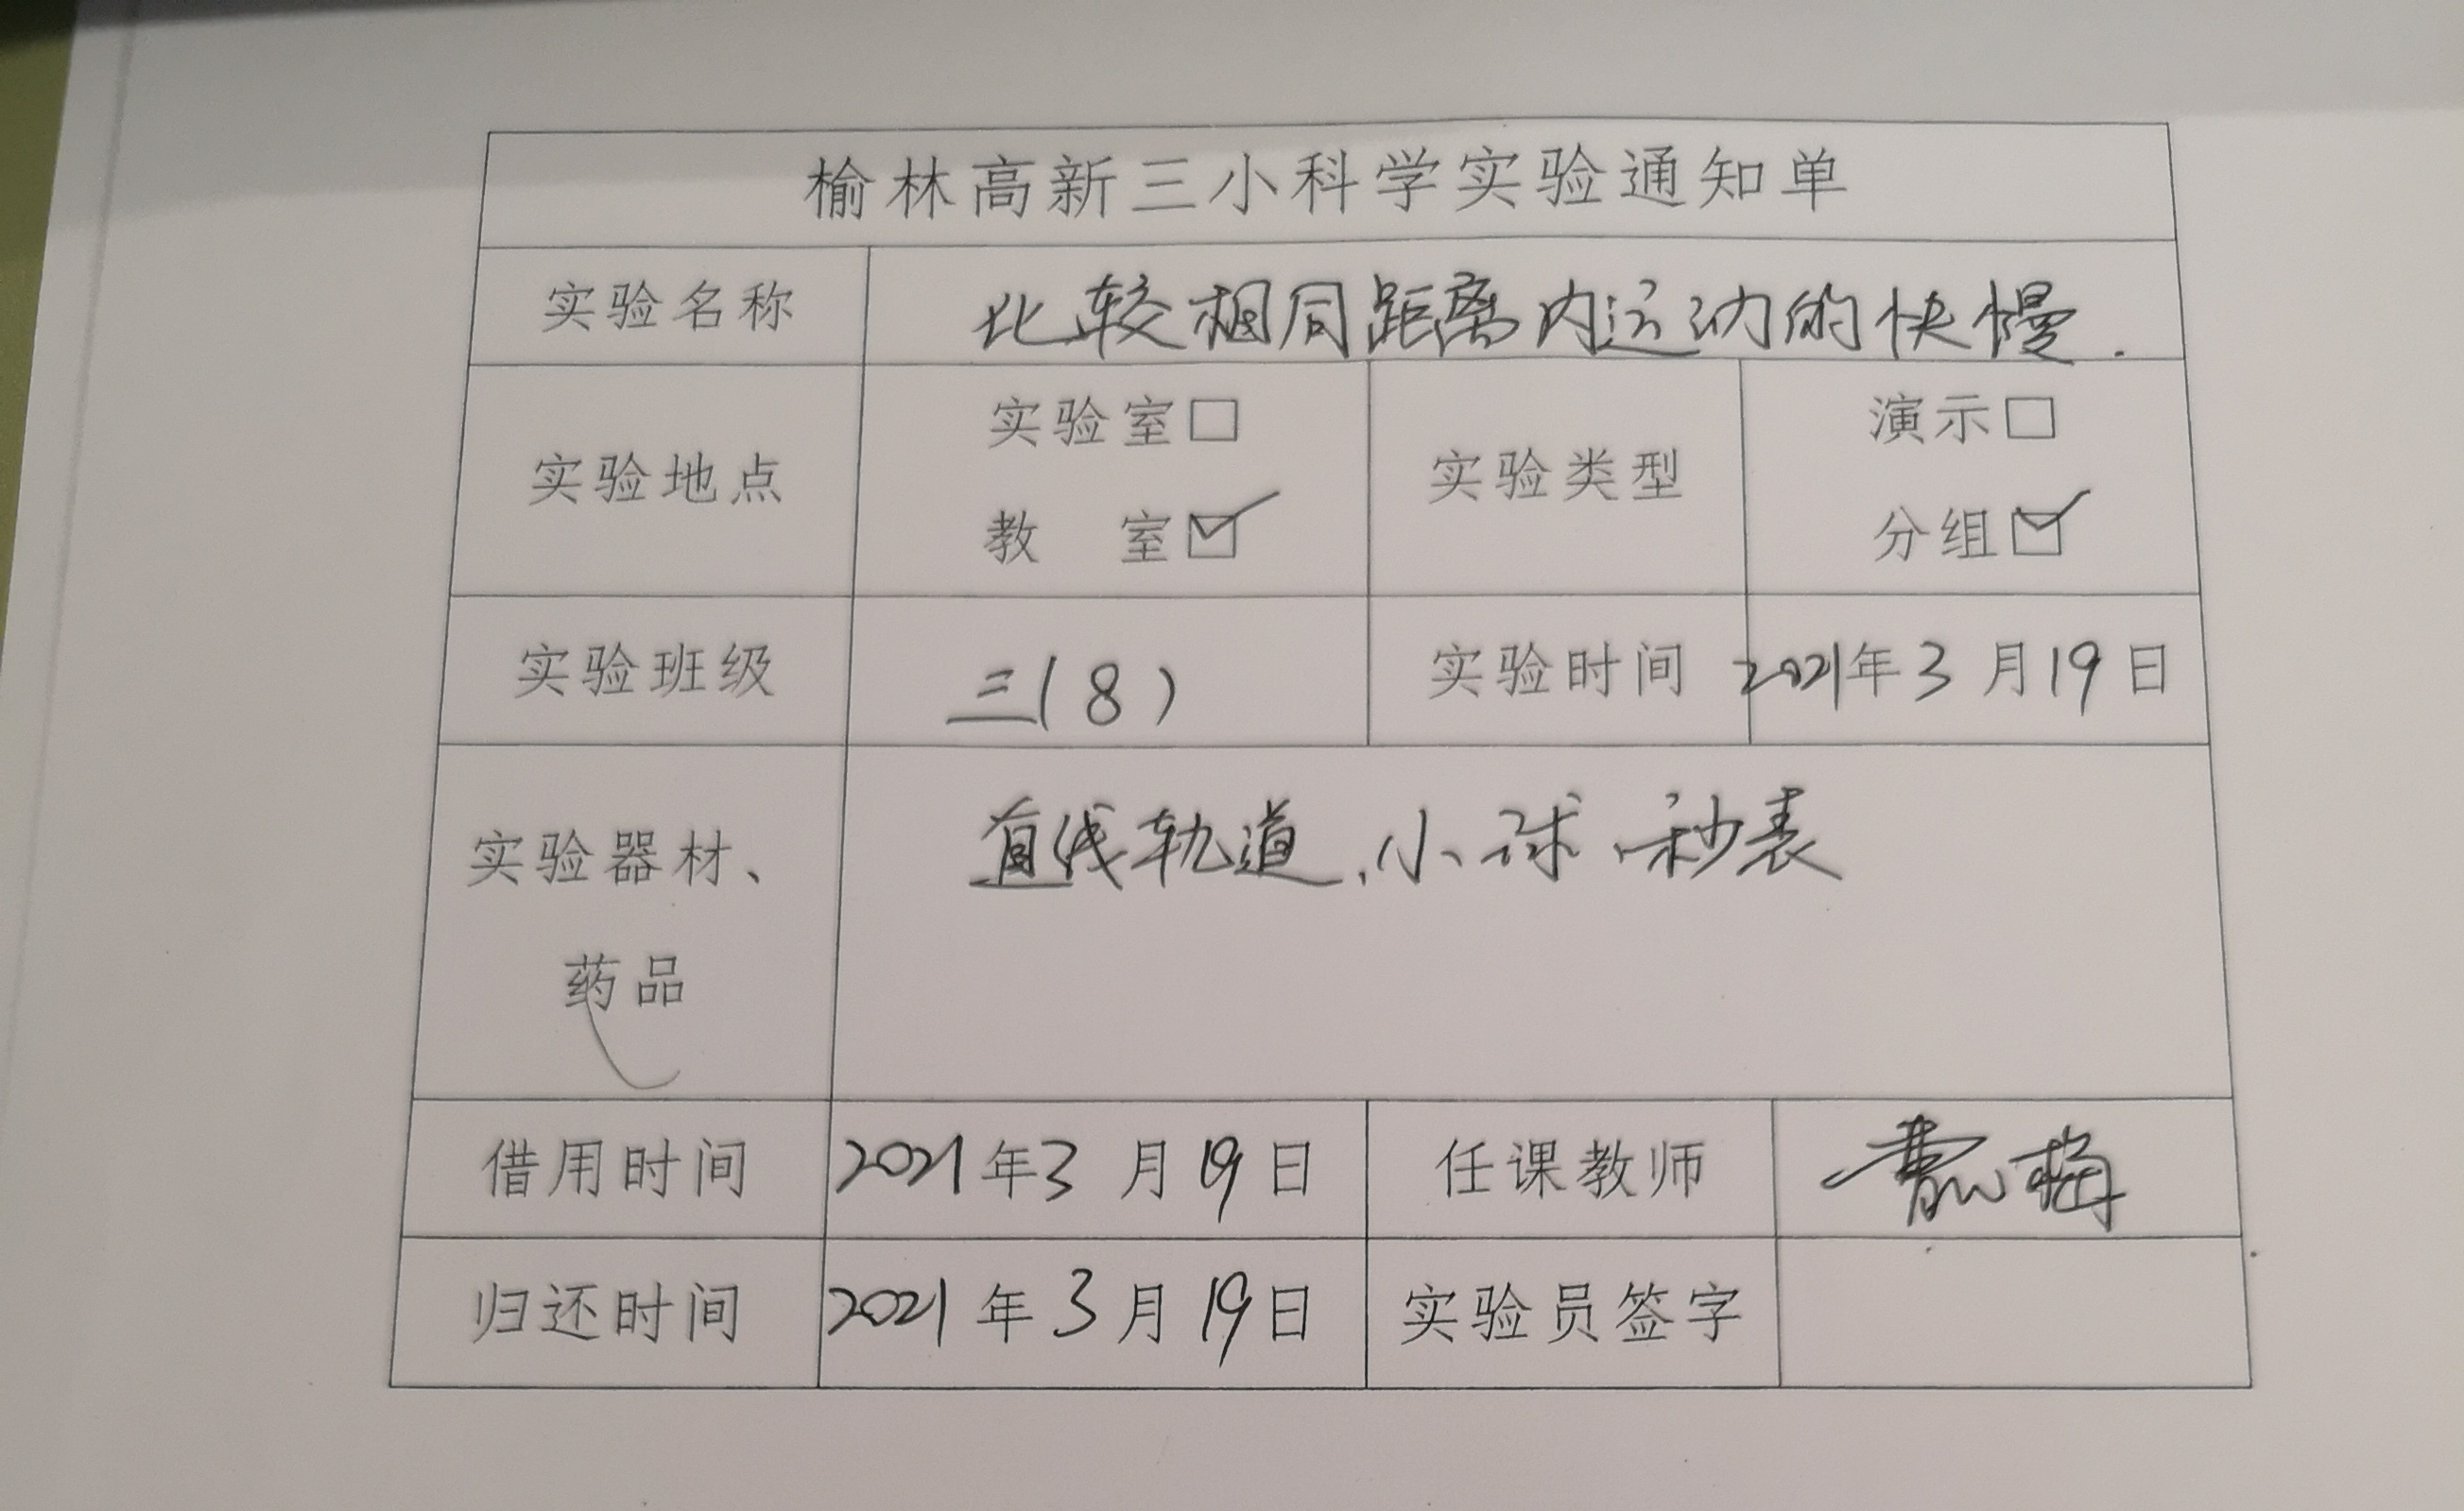 榆林高新三小科学实验通知单
实验名称 比较相同距离内运动的快慢.
实验地点 实验室□ 教 室☑ 实验类型 演示□ 分组☑
实验班级 三(8) 实验时间 2021年3月19日
实验器材、药品 直线轨道、小球、秒表
借用时间 2021年3月19日 任课教师
归还时间 2021年3月19日 实验员签字